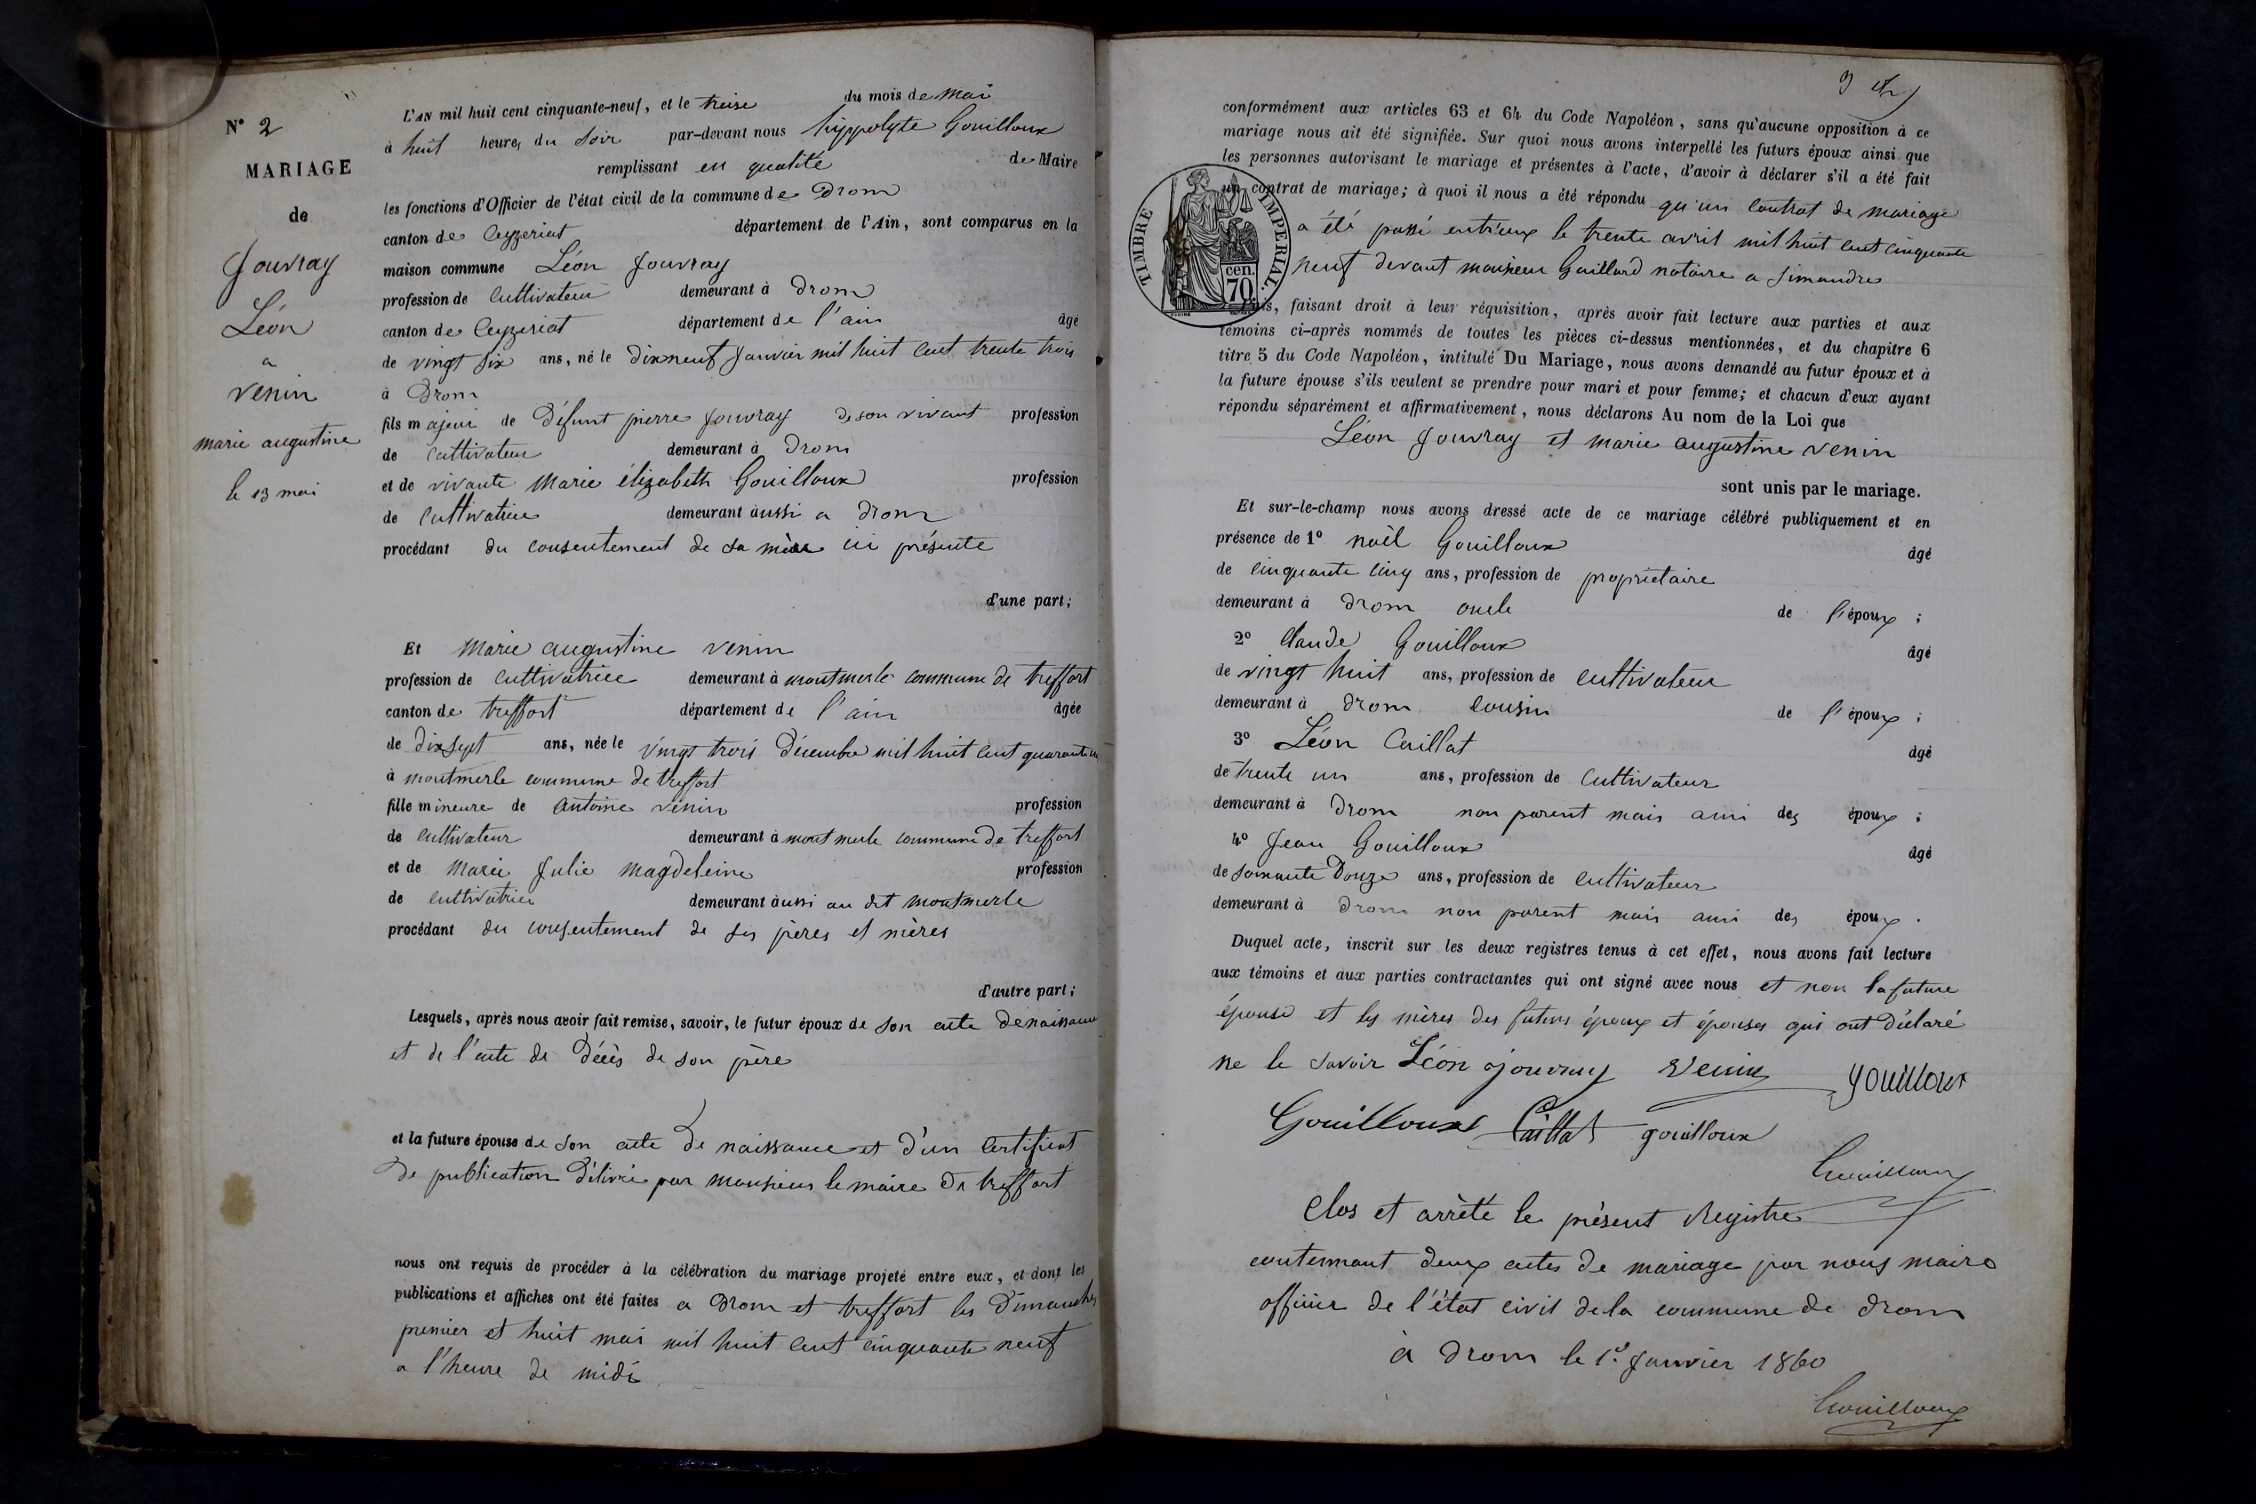 N° 2
MARIAGE
de
Jouvray
Léon
a
venin
marie augustine
le 13 mai
L'AN mil huit cent cinquante-neuf, et le treise du mois de mai
à huit heures du soir par-devant nous hyppolyte Gouilloux
remplissant en qualité de Maire
les fonctions d'Officier de l'état civil de la commune de Drom
canton de Ceyzeriat département de l'Ain, sont comparus en la
maison commune Léon Jouvray
profession de cultivateur demeurant à Drom
canton de Ceyzeriat département de l'ain âgé
de vingt six ans, né le dixneuf Janvier mil huit cent trente trois
à Drom
fils majeur de Défunt pierre Jouvray de son vivant profession
de cultivateur demeurant à Drom
et de vivante Marie élizabeth Gouilloux profession
de cultivatrice demeurant aussi a Drom
procédant du consentement de sa mère ici présente
d'une part;
Et Marie augustine venin
profession de cultivatrice demeurant à montmerle commune de treffort
canton de treffort département de l'ain âgée
de dix sept ans, née le vingt trois Décembre mil huit cent quarante un
à montmerle commune de treffort
fille mineure de antoine venin profession
de cultivateur demeurant à montmerle commune de treffort
et de Marie Julie magdeleine profession
de cultivatrice demeurant aussi au dit montmerle
procédant du consentement de ses pères et mères
d'autre part;
Lesquels, après nous avoir fait remise, savoir, le futur époux de son acte de naissance
et de l'acte de décès de son père
et la future épouse de son acte de naissance et d'un certificat
de publication délivré par monsieur le maire de treffort
nous ont requis de procéder à la célébration du mariage projeté entre eux, et dont les
publications et affiches ont été faites a Drom et treffort les dimanches
premier et huit mai mil huit cent cinquante neuf
a l'heure de midi
conformément aux articles 63 et 64 du Code Napoléon, sans qu'aucune opposition à ce
mariage nous ait été signifiée. Sur quoi nous avons interpellé les futurs époux ainsi que
les personnes autorisant le mariage et présentes à l'acte, d'avoir à déclarer s'il a été fait
un contrat de mariage; à quoi il nous a été répondu qu'un contrat de mariage
a été passé entr'eux le trente avril mil huit cent cinquante
neuf devant monsieur Gaillard notaire a Simandre
TIMBRE IMPERIAL.
70 cen.
faisant droit à leur réquisition, après avoir fait lecture aux parties et aux
témoins ci-après nommés de toutes les pièces ci-dessus mentionnées, et du chapitre 6
titre 5 du Code Napoléon, intitulé Du Mariage, nous avons demandé au futur époux et à
la future épouse s'ils veulent se prendre pour mari et pour femme; et chacun d'eux ayant
répondu séparément et affirmativement, nous déclarons Au nom de la Loi que
Léon Jouvray et marie augustine venin
sont unis par le mariage.
Et sur-le-champ nous avons dressé acte de ce mariage célébré publiquement et en
présence de 1° noël Gouilloux âgé
de cinquante cinq ans, profession de propriétaire
demeurant à Drom oncle de l'époux ;
2° Claude Gouilloux âgé
de vingt huit ans, profession de cultivateur
demeurant à Drom cousin de l'époux ;
3° Léon Caillat âgé
de trente un ans, profession de cultivateur
demeurant à Drom non parent mais ami des époux ;
4° Jean Gouilloux âgé
de soixante Douze ans, profession de cultivateur
demeurant à Drom non parent mais ami des époux .
Duquel acte, inscrit sur les deux registres tenus à cet effet, nous avons fait lecture
aux témoins et aux parties contractantes qui ont signé avec nous et non la future
épouse et les mères des futurs époux et épouses qui ont déclaré
ne le savoir Léon jouvray Venin gouilloux
Gouilloux Caillat gouilloux
Gouilloux
Clos et arrêté le présent Registre
contennant deux actes de mariage par nous maire
officier de l'état civil de la commune de Drom
à Drom le 1er Janvier 1860
Gouilloux